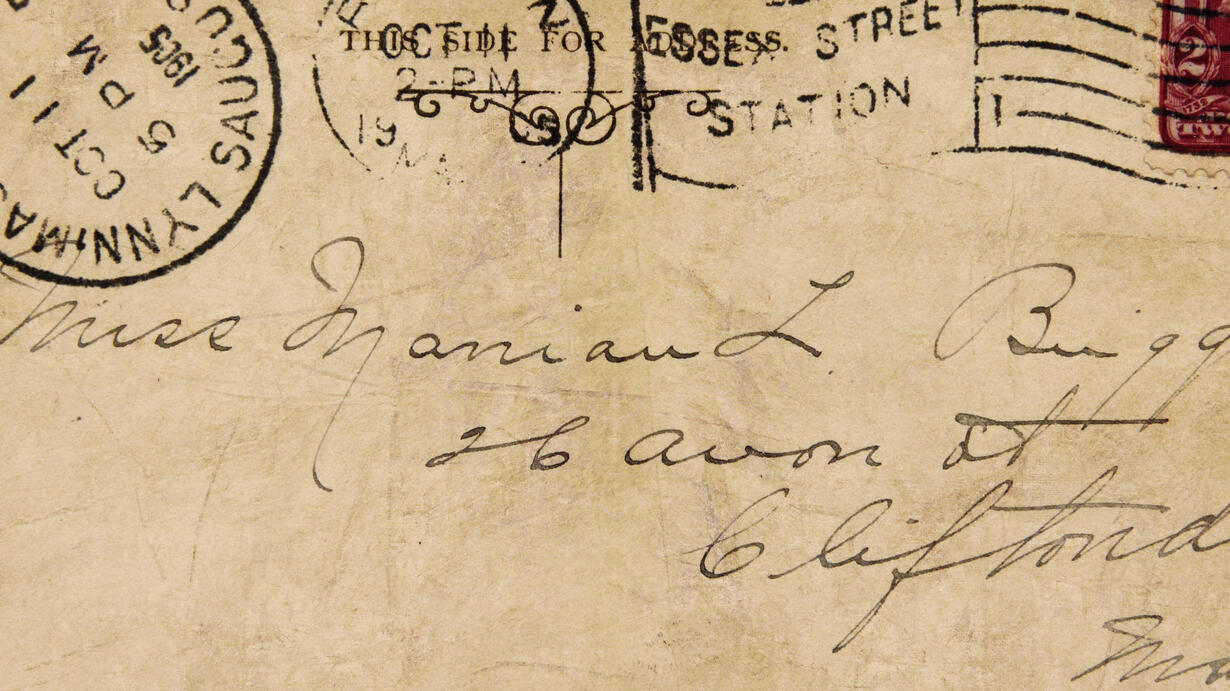 THIS SIDE FOR ADDRESS.
OCT 11
2-PM
19
ESSEX STREET
STATION
1
2
LYNN, MA
SAUGU
OCT 11
9 PM
1905
Miss Marian L Brigg
26 Avon St
Cliftond